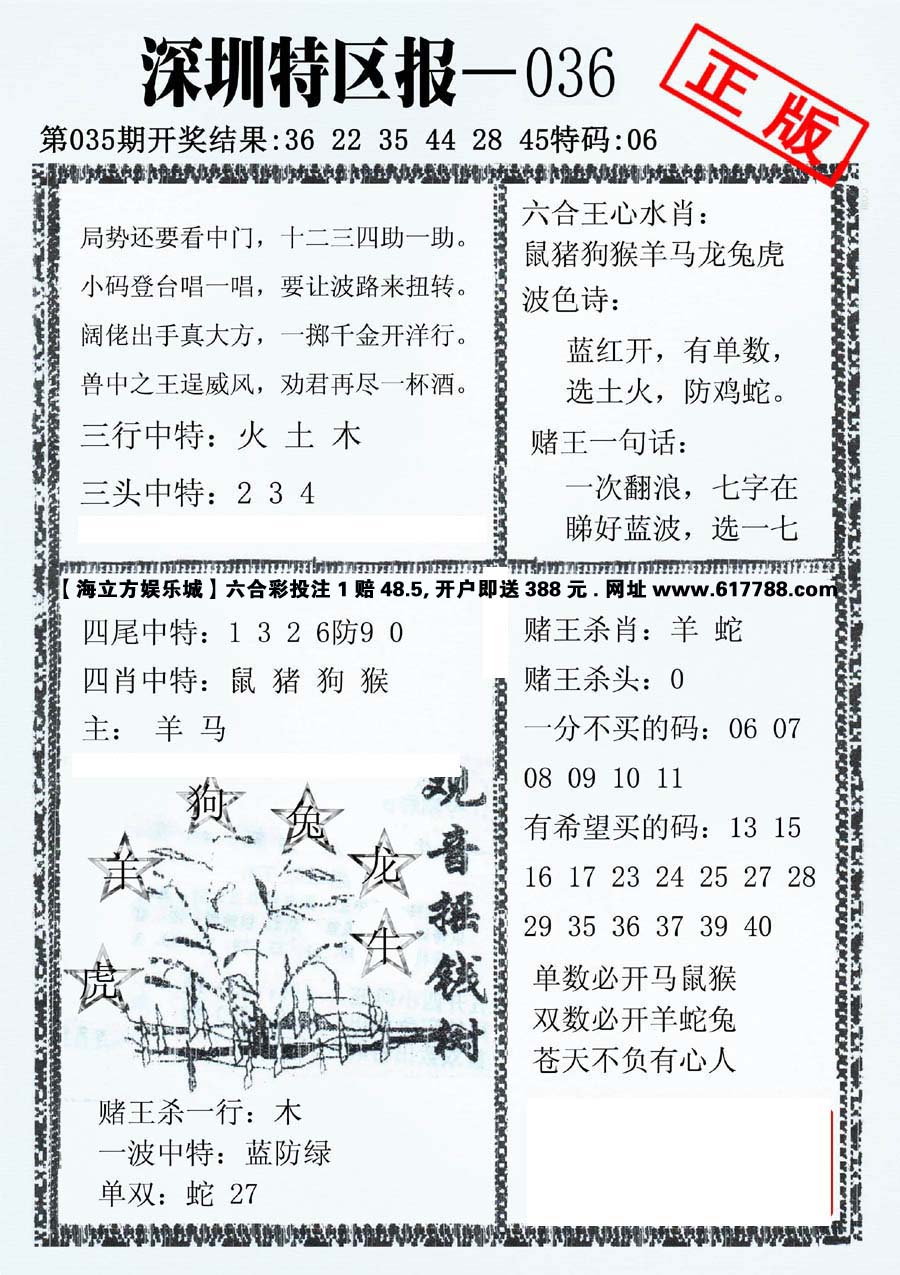 深圳特区报—036
正版
第035期开奖结果:36 22 35 44 28 45特码:06
局势还要看中门，十二三四助一助。
小码登台唱一唱，要让波路来扭转。
阔佬出手真大方，一掷千金开洋行。
兽中之王逞威风，劝君再尽一杯酒。
三行中特：火 土 木
三头中特：2 3 4
六合王心水肖：
鼠猪狗猴羊马龙兔虎
波色诗：
蓝红开，有单数，
选土火，防鸡蛇。
赌王一句话：
一次翻浪，七字在
睇好蓝波，选一七
【海立方娱乐城】六合彩投注1赔48.5,开户即送388元.网址www.617788.com
四尾中特：1 3 2 6防9 0
四肖中特：鼠 猪 狗 猴
主： 羊 马
狗
兔
羊
龙
牛
虎
观音摇钱树
赌王杀一行：木
一波中特：蓝防绿
单双：蛇 27
赌王杀肖：羊 蛇
赌王杀头：0
一分不买的码：06 07
08 09 10 11
有希望买的码：13 15
16 17 23 24 25 27 28
29 35 36 37 39 40
单数必开马鼠猴
双数必开羊蛇兔
苍天不负有心人